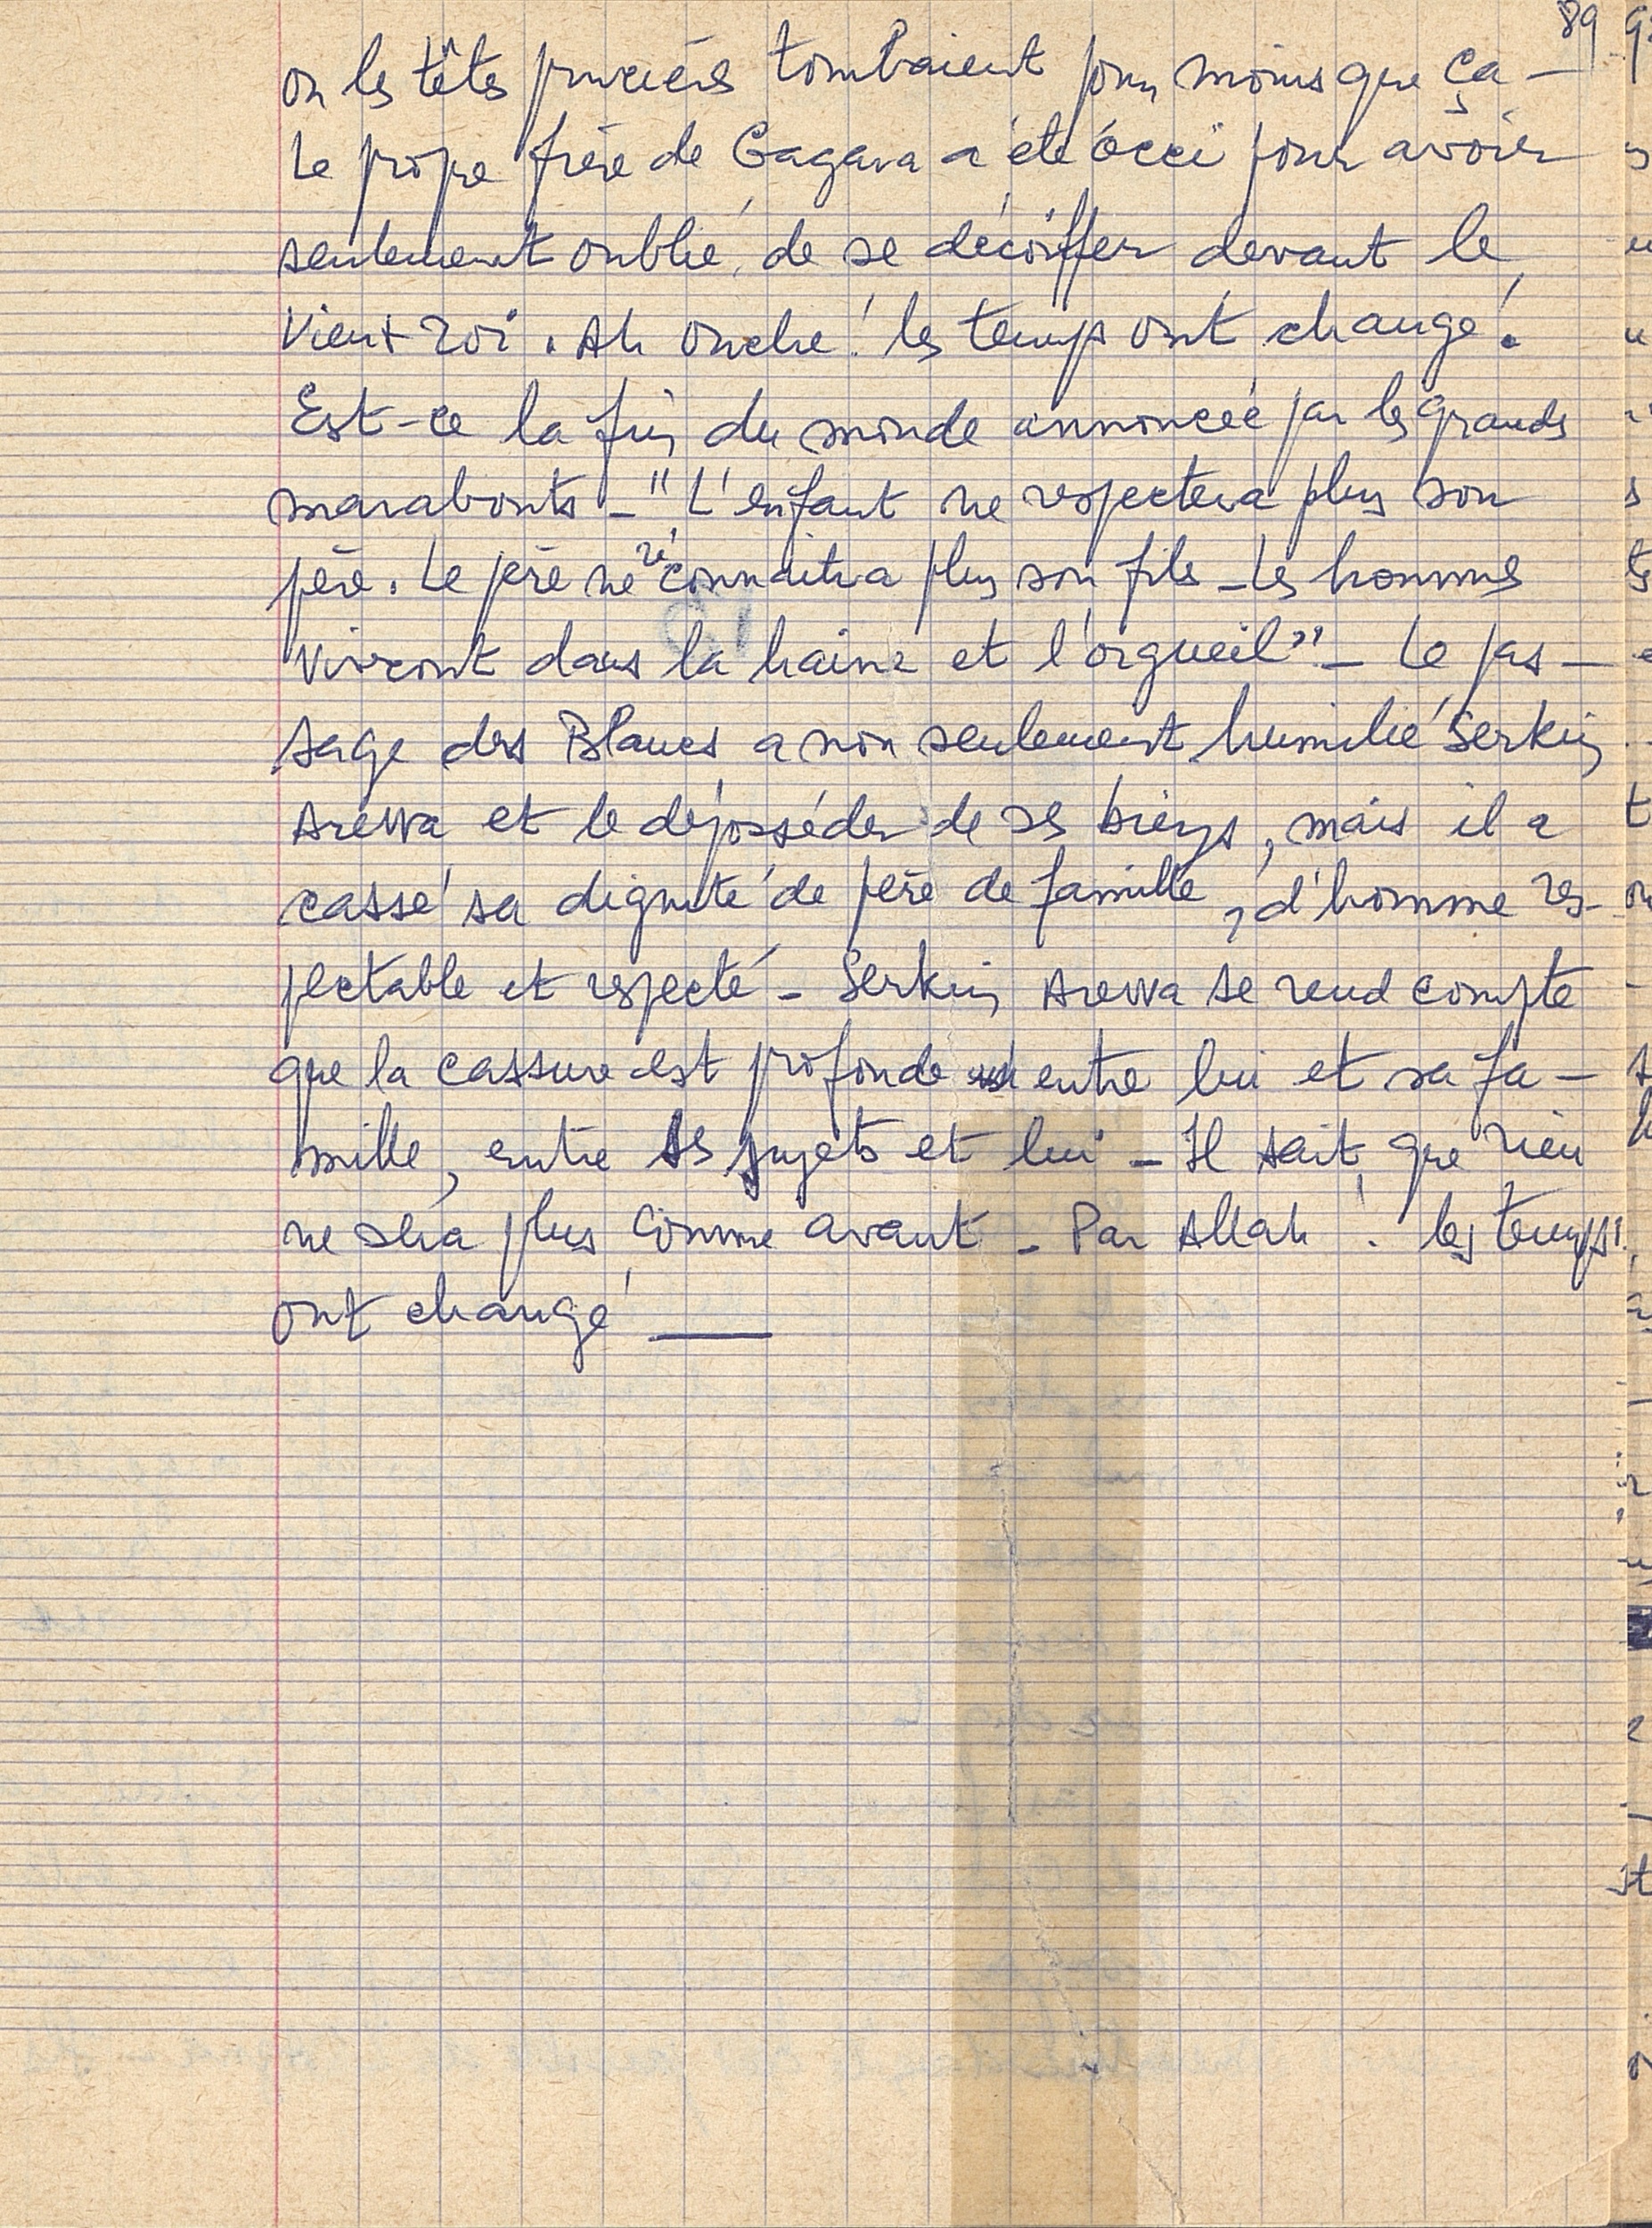 89
où les têtes princières tombaient pour moins que ça –
Le propre frère de Gagara a été occi pour avoir
seulement oublié de se décoiffer devant le
vieux roi. Ah Ouche ! les temps ont changé !
Est-ce la fin du monde annoncée par les grands
marabouts – "L'enfant ne respectera plus son
père. Le père ne reconnaîtra plus son fils – Les hommes
vivront dans la haine et l'orgueil" – Le pas-
sage des Blancs a non seulement humilié Serkin
Arewa et le déposséder de ses biens, mais il a
cassé sa dignité de père de famille, d'homme res-
pectable et respecté – Serkin Arewa se rend compte
que la cassure est profonde entre lui et sa fa-
mille, entre ses sujets et lui – Il sait que rien
ne sera plus comme avant – Par Allah ! les temps
ont changé —